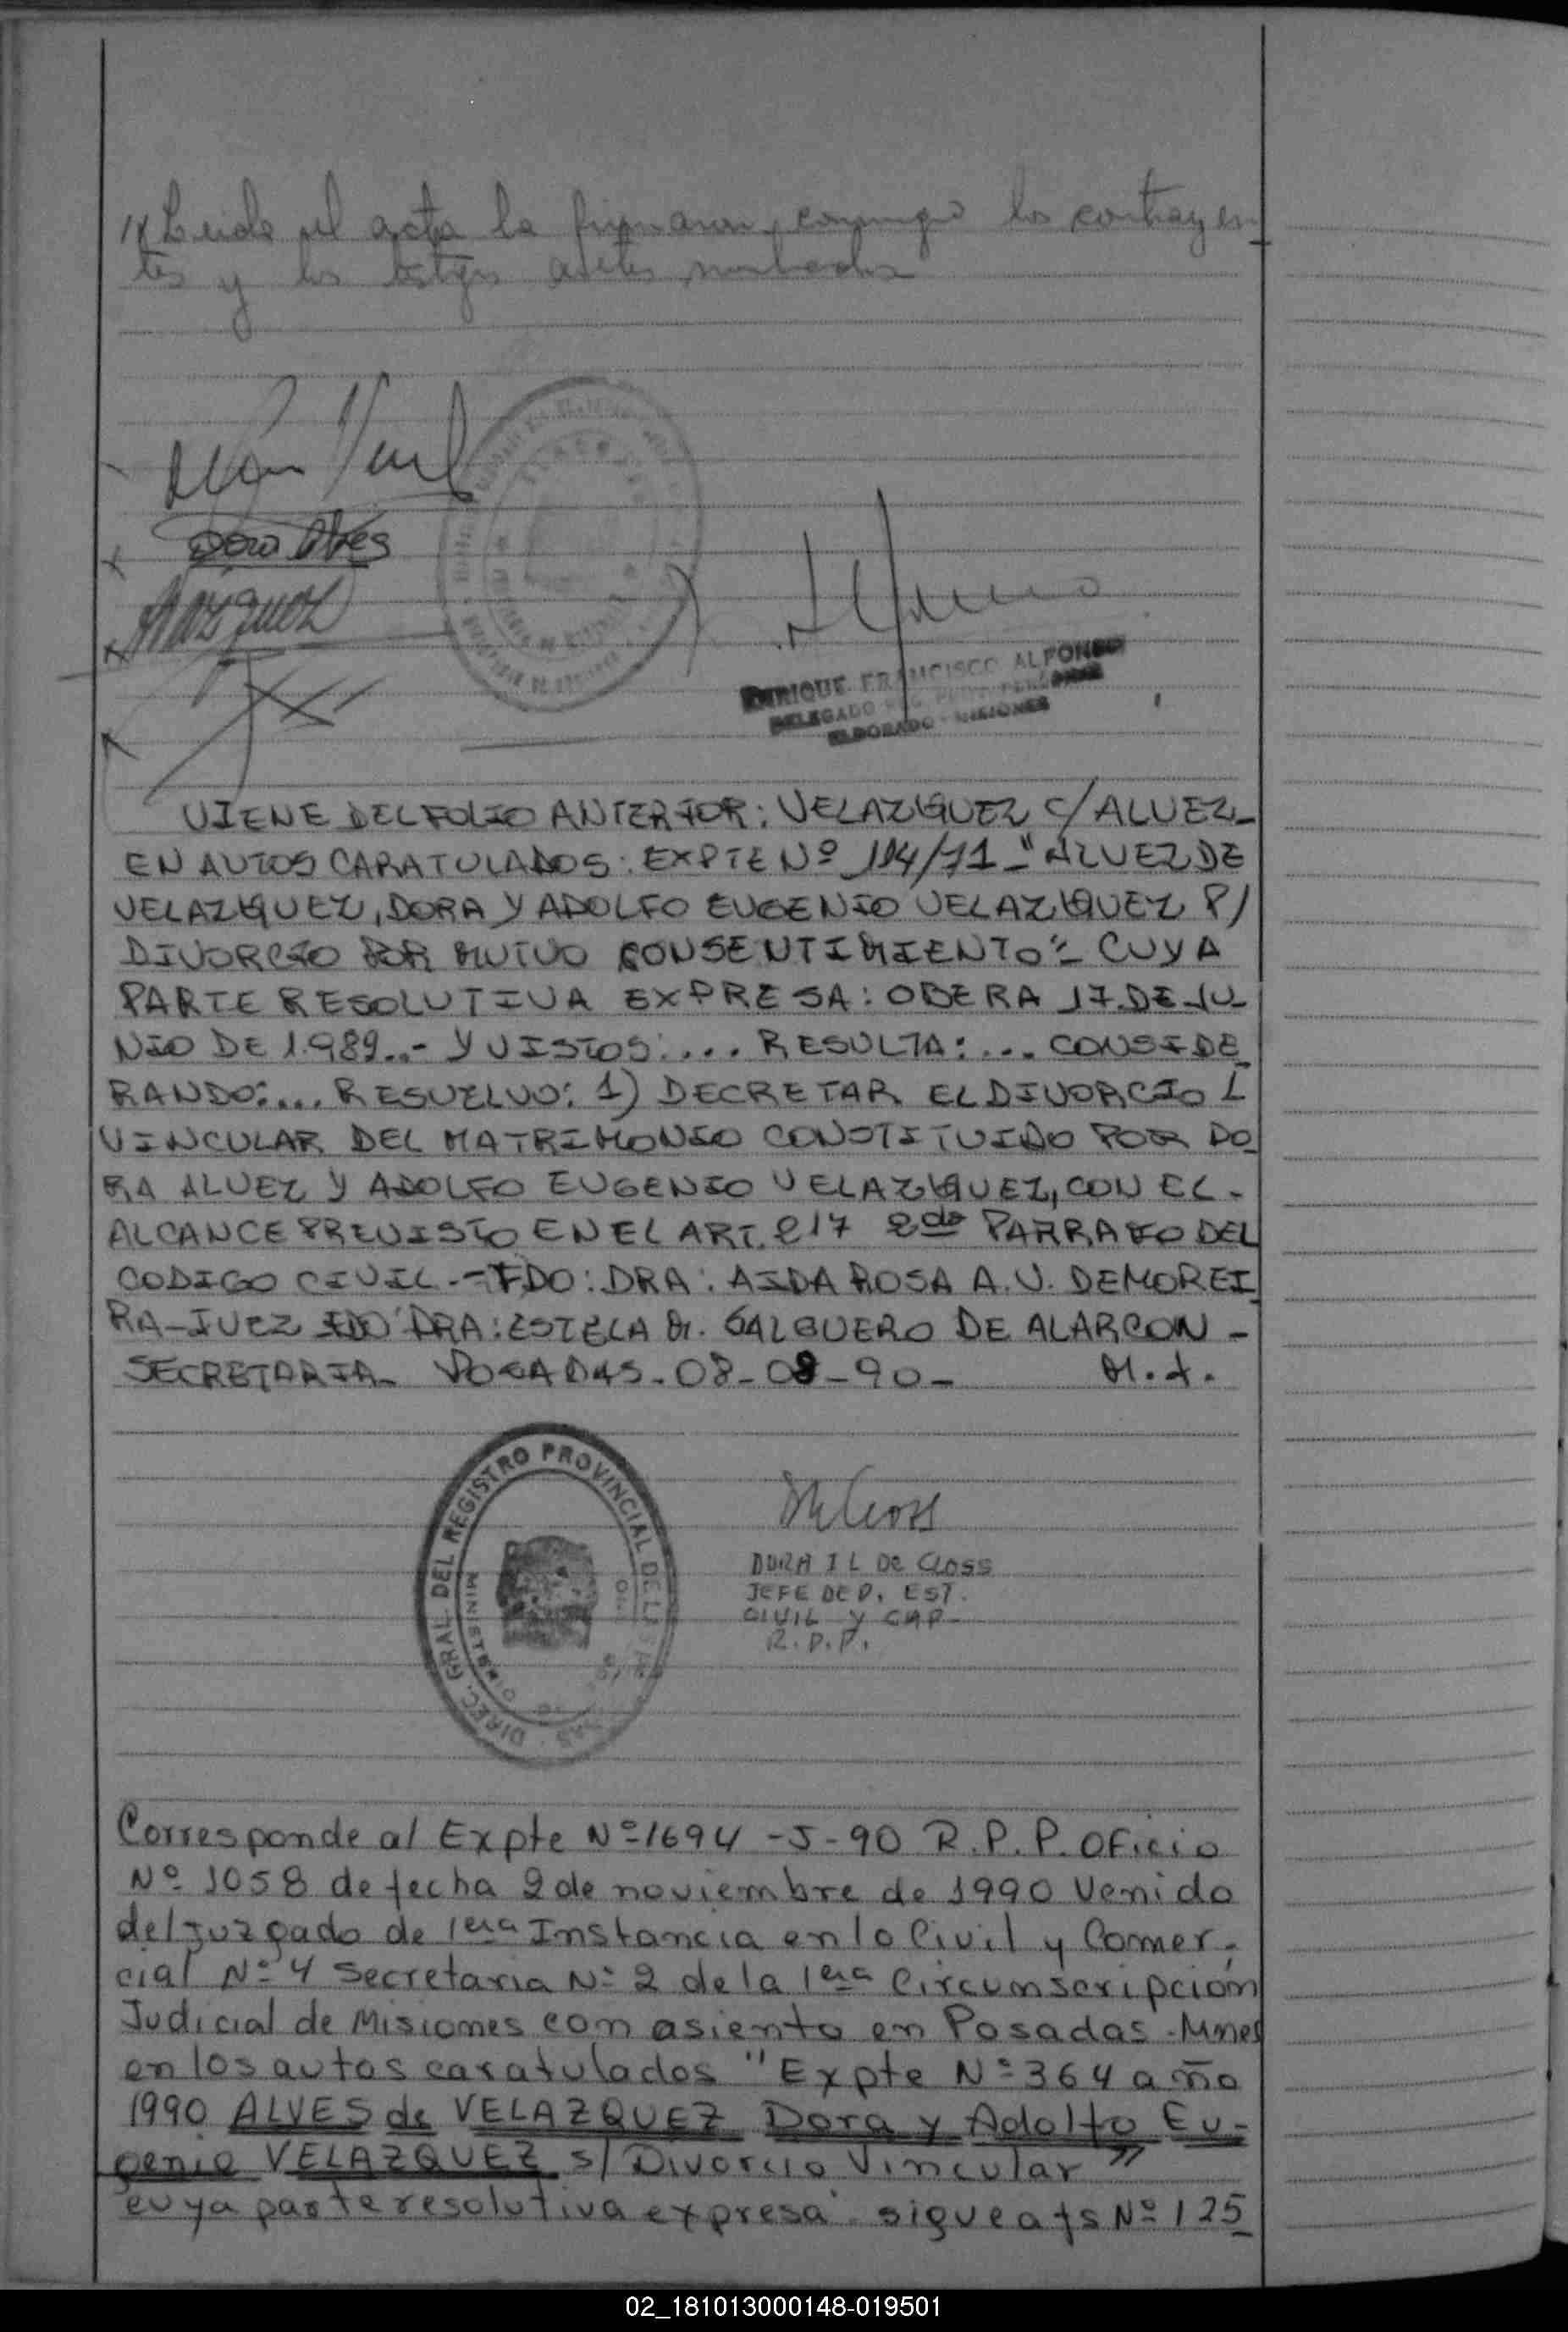 Leida el acta la firmaron, conmigo los contrayen
tes y los testigos antes nombrados
Dora Alves
ENRIQUE FRANCISCO ALFONSO
DELEGADO REG. PROV. PERSONAS
ELDORADO - MISIONES
VIENE DEL FOLIO ANTERIOR: VELAZQUEZ C/ ALVEZ-
EN AUTOS CARATULADOS: EXPTE Nº 114/71 - "ALVEZ DE
VELAZQUEZ, DORA Y ADOLFO EUGENIO VELAZQUEZ P/
DIVORCIO POR MUTUO CONSENTIMIENTO"- CUYA
PARTE RESOLUTIVA EXPRESA: OBERA 17 DE JU-
NIO DE 1.989..- Y VISTOS:.... RESULTA:... CONSIDE
RANDO:... RESUELVO: 1) DECRETAR EL DIVORCIO
VINCULAR DEL MATRIMONIO CONSTITUIDO POR DO
RA ALVEZ Y ADOLFO EUGENIO VELAZQUEZ, CON EL-
ALCANCE PREVISTO EN EL ART. 217 2do PARRAFO DEL
CODIGO CIVIL.-=FDO: DRA: AIDA ROSA A.V. DE MOREI
RA-JUEZ FDO DRA: ESTELA M. SALGUERO DE ALARCON -
SECRETARIA- POSADAS-08-08-90-
DIREC. GRAL. DEL REGISTRO PROVINCIAL DE LAS PERSONAS
MINISTERIO
DORA I L DE CLOSS
JEFE DEP. EST.
CIVIL Y CAP-
R.P.P.
Corresponde al Expte Nº 1694 -J-90 R.P.P. Oficio
Nº 1058 de fecha 2 de noviembre de 1990 Venido
del juzgado de 1era Instancia en lo Civil y Comer-
cial Nº 4 Secretaria Nº 2 de la 1era Circunscripción
Judicial de Misiones con asiento en Posadas - Mnes
en los autos caratulados "Expte Nº 364 año
1990 ALVES de VELAZQUEZ Dora y Adolfo Eu-
genio VELAZQUEZ s/ Divorcio Vincular"
cuya parte resolutiva expresa: sigue a fs Nº 125
02_181013000148-019501